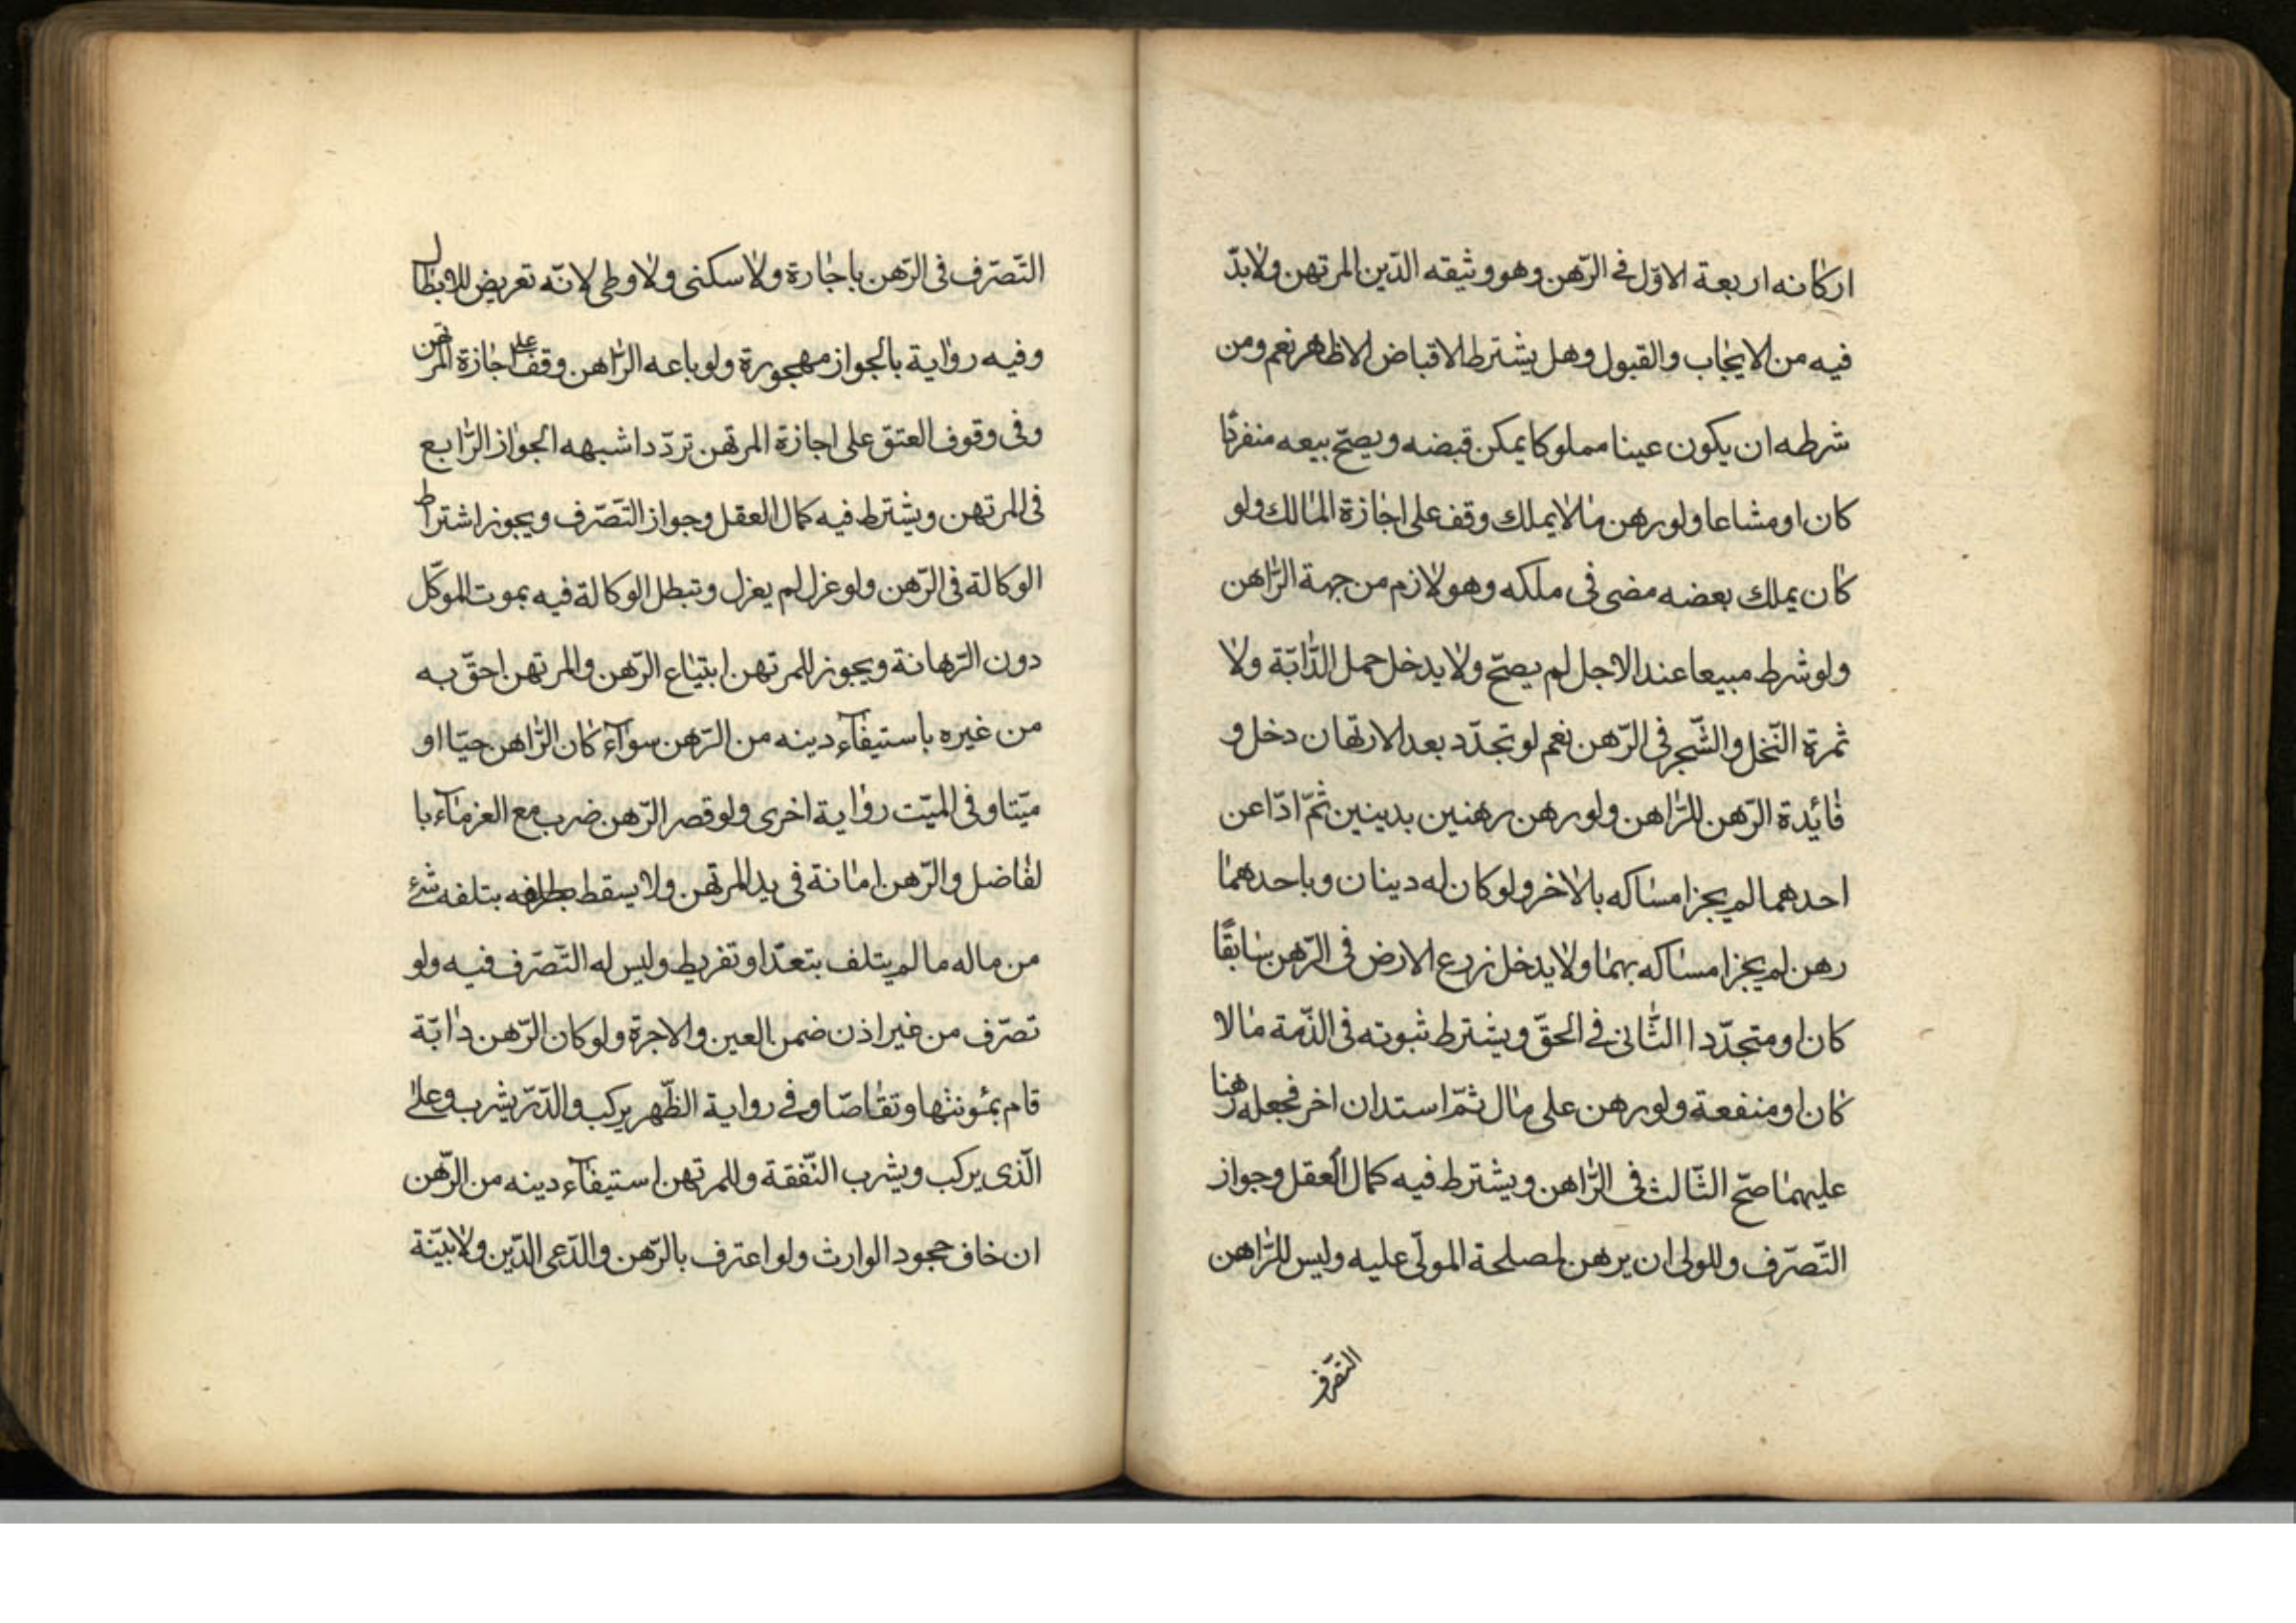 اركانه اربعة الاوّل فى الرّهن وهو وثيقه الدّين المرتهن ولابدّ
فيه من الايجاب والقبول وهل يشترط الاقباض الاظهر نعم ومن
شرطه ان يكون عينا مملوكا يمكن قبضه ويصحّ بيعه منفردًا
كان او مشاعا ولو رهن مالا يملك وقف على اجازة المالك ولو
كان يملك بعضه مضى فى ملكه وهو لازم من جهة الرّاهن
ولو شرط مبيعا عند الاجل لم يصحّ ولا يدخل حمل الدّابّة ولا
ثمرة النّخل والشّجر فى الرّهن نعم لو تجدّد بعد الارتهان دخل و
فائدة الرّهن للرّاهن ولو رهن رهنين بدينين ثمّ ادّا عن
احدهما لم يجز امساكه بالاخر ولو كان له دينان وباحدهما
رهن لم يجز امساكه بهما ولا يدخل زرع الارض فى الرّهن سابقًا
كان او متجدّدا الثّانى فى الحقّ ويشترط ثبوته فى الذّمة مالا
كان او منفعة ولو رهن على مال ثمّ استدان اخر فجعله رهنا
عليهما صحّ الثّالث فى الرّاهن ويشترط فيه كمال العقل وجواز
التّصرّف وللولى ان يرهن لمصلحة المولّى عليه وليس للرّاهن
التّصرّف
التّصرّف فى الرّهن باجارة ولا سكنى ولا وطى لانّه تعريض للابطال
وفيه رواية بالجواز مهجورة ولو باعه الرّاهن وقف على اجازة المرتهن
وفى وقوف العتق على اجازة المرتهن تردّد اشبهه الجواز الرّابع
فى المرتهن ويشترط فيه كمال العقل وجواز التّصرّف ويجوز اشتراط
الوكالة فى الرّهن ولو عزل لم يعزل وتبطل الوكالة فيه بموت الموكّل
دون الرّهانة ويجوز للمرتهن ابتياع الرّهن والمرتهن احقّ به
من غيره باستيفآء دينه من الرّهن سوآء كان الرّاهن حيّا او
ميّتا وفى الميّت رواية اخرى ولو قصر الرّهن ضرب مع الغرمآء با
لفاضل والرّهن امانة فى يد المرتهن ولا يسقط بتلفه شئ
من ماله ما لم يتلف بتعدّ او تفريط وليس له التّصرّف فيه ولو
تصرّف من غير اذن ضمن العين والاجرة ولو كان الرّهن دابّة
قام بمئونتها وتقاصّا وفى رواية الظّهر يركب والدّرّ يشرب وعلى
الّذى يركب ويشرب النّفقة وللمرتهن استيفآء دينه من الرّهن
ان خاف جحود الوارث ولو اعترف بالرّهن والدّعى الدّين ولا بيّنة